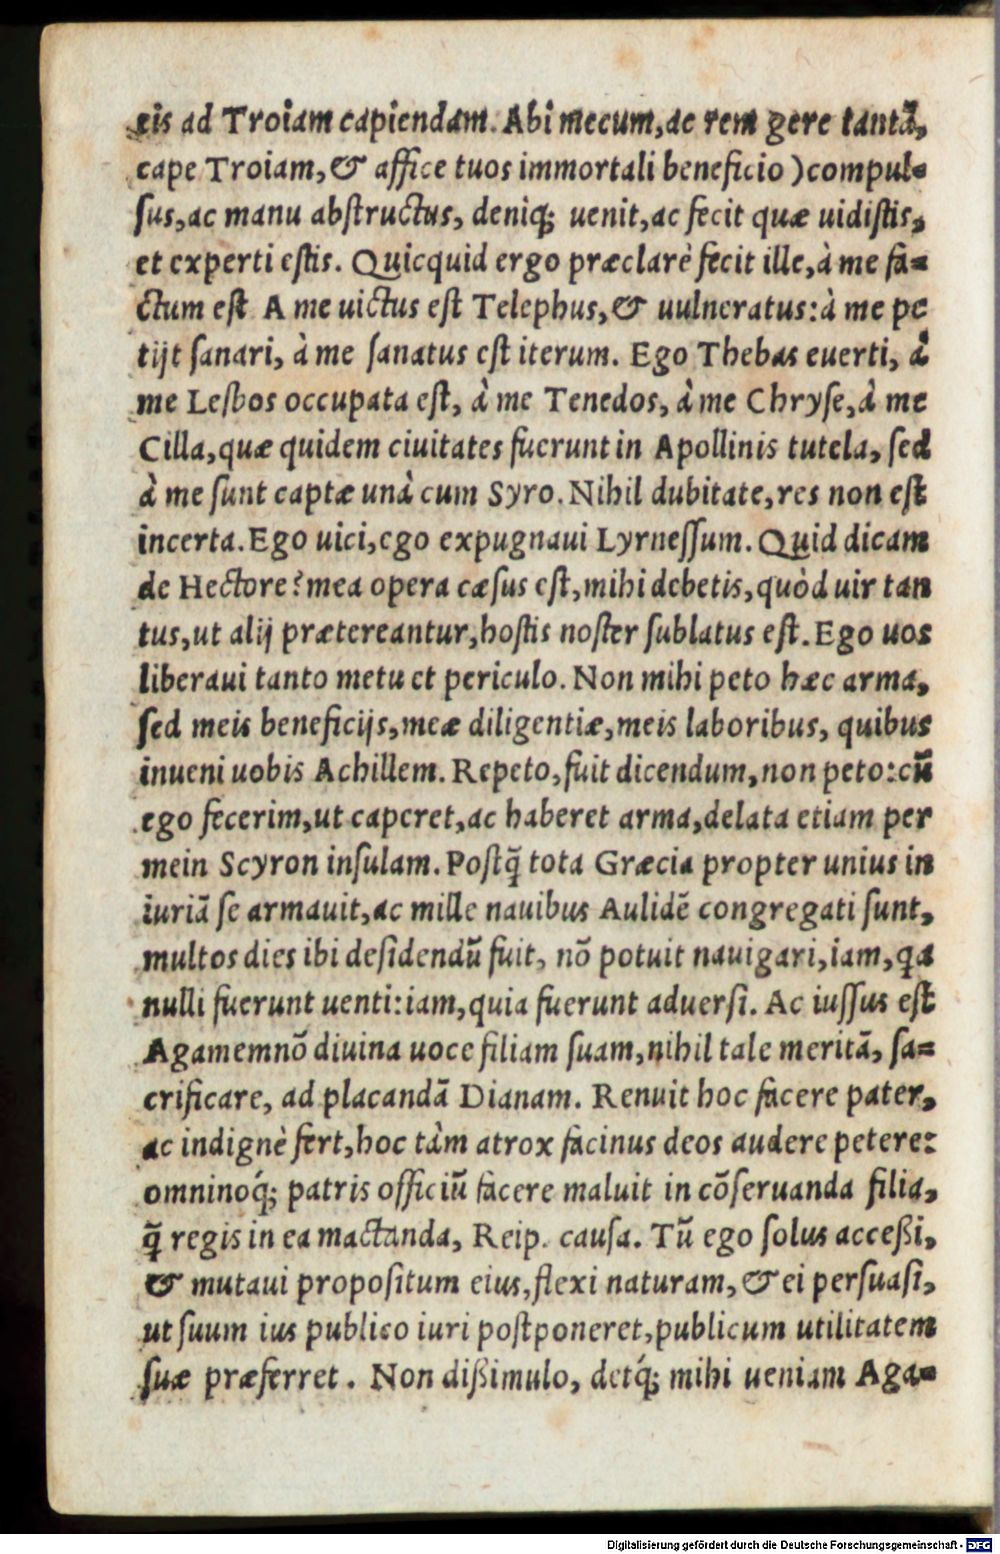 eis ad Troiam capiendam. Abi mecum, ac rem gere tantã,
cape Troiam, & affice tuos immortali beneficio ) compul⸗
ſus, ac manu abſtructus, deniq; uenit, ac fecit quæ uidiſtis,
et experti eſtis. Quicquid ergo præclarè fecit ille, à me fa⸗
ctum eſt A me uictus eſt Telephus, & uulneratus: à me pe
tijt ſanari, à me ſanatus eſt iterum. Ego Thebas euerti, à
me Lesbos occupata eſt, à me Tenedos, à me Chryſe, à me
Cilla, quæ quidem ciuitates fuerunt in Apollinis tutela, ſed
à me ſunt captæ unà cum Syro. Nihil dubitate, res non eſt
incerta. Ego uici, ego expugnaui Lyrneſſum. Quid dicam
de Hectore? mea opera cæſus eſt, mihi debetis, quòd uir tan
tus, ut alij prætereantur, hoſtis noſter ſublatus eſt. Ego uos
liberaui tanto metu et periculo. Non mihi peto hæc arma,
ſed meis beneficijs, meæ diligentiæ, meis laboribus, quibus
inueni uobis Achillem. Repeto, fuit dicendum, non peto: cũ
ego fecerim, ut caperet, ac haberet arma, delata etiam per
mein Scyron inſulam. Poſtq̃ tota Græcia propter unius in
iuriã ſe armauit, ac mille nauibus Aulidẽ congregati ſunt,
multos dies ibi deſidendũ fuit, nõ potuit nauigari, iam, qa
nulli fuerunt uenti: iam, quia fuerunt aduerſi. Ac iuſſus eſt
Agamemnõ diuina uoce filiam ſuam, nihil tale meritã, ſa⸗
crificare, ad placandã Dianam. Renuit hoc facere pater,
ac indignè fert, hoc tàm atrox facinus deos audere petere:
omninoq́; patris officiũ facere maluit in cõſeruanda filia,
q̃ regis in ea mactanda, Reip. cauſa. Tũ ego ſolus acceßi,
& mutaui propoſitum eius, flexi naturam, & ei perſuaſi,
ut ſuum ius publico iuri poſtponeret, publicum utilitatem
ſuæ præferret. Non dißimulo, detq́; mihi ueniam Aga⸗
Digitalisierung gefördert durch die Deutsche Forschungsgemeinschaft - DFG